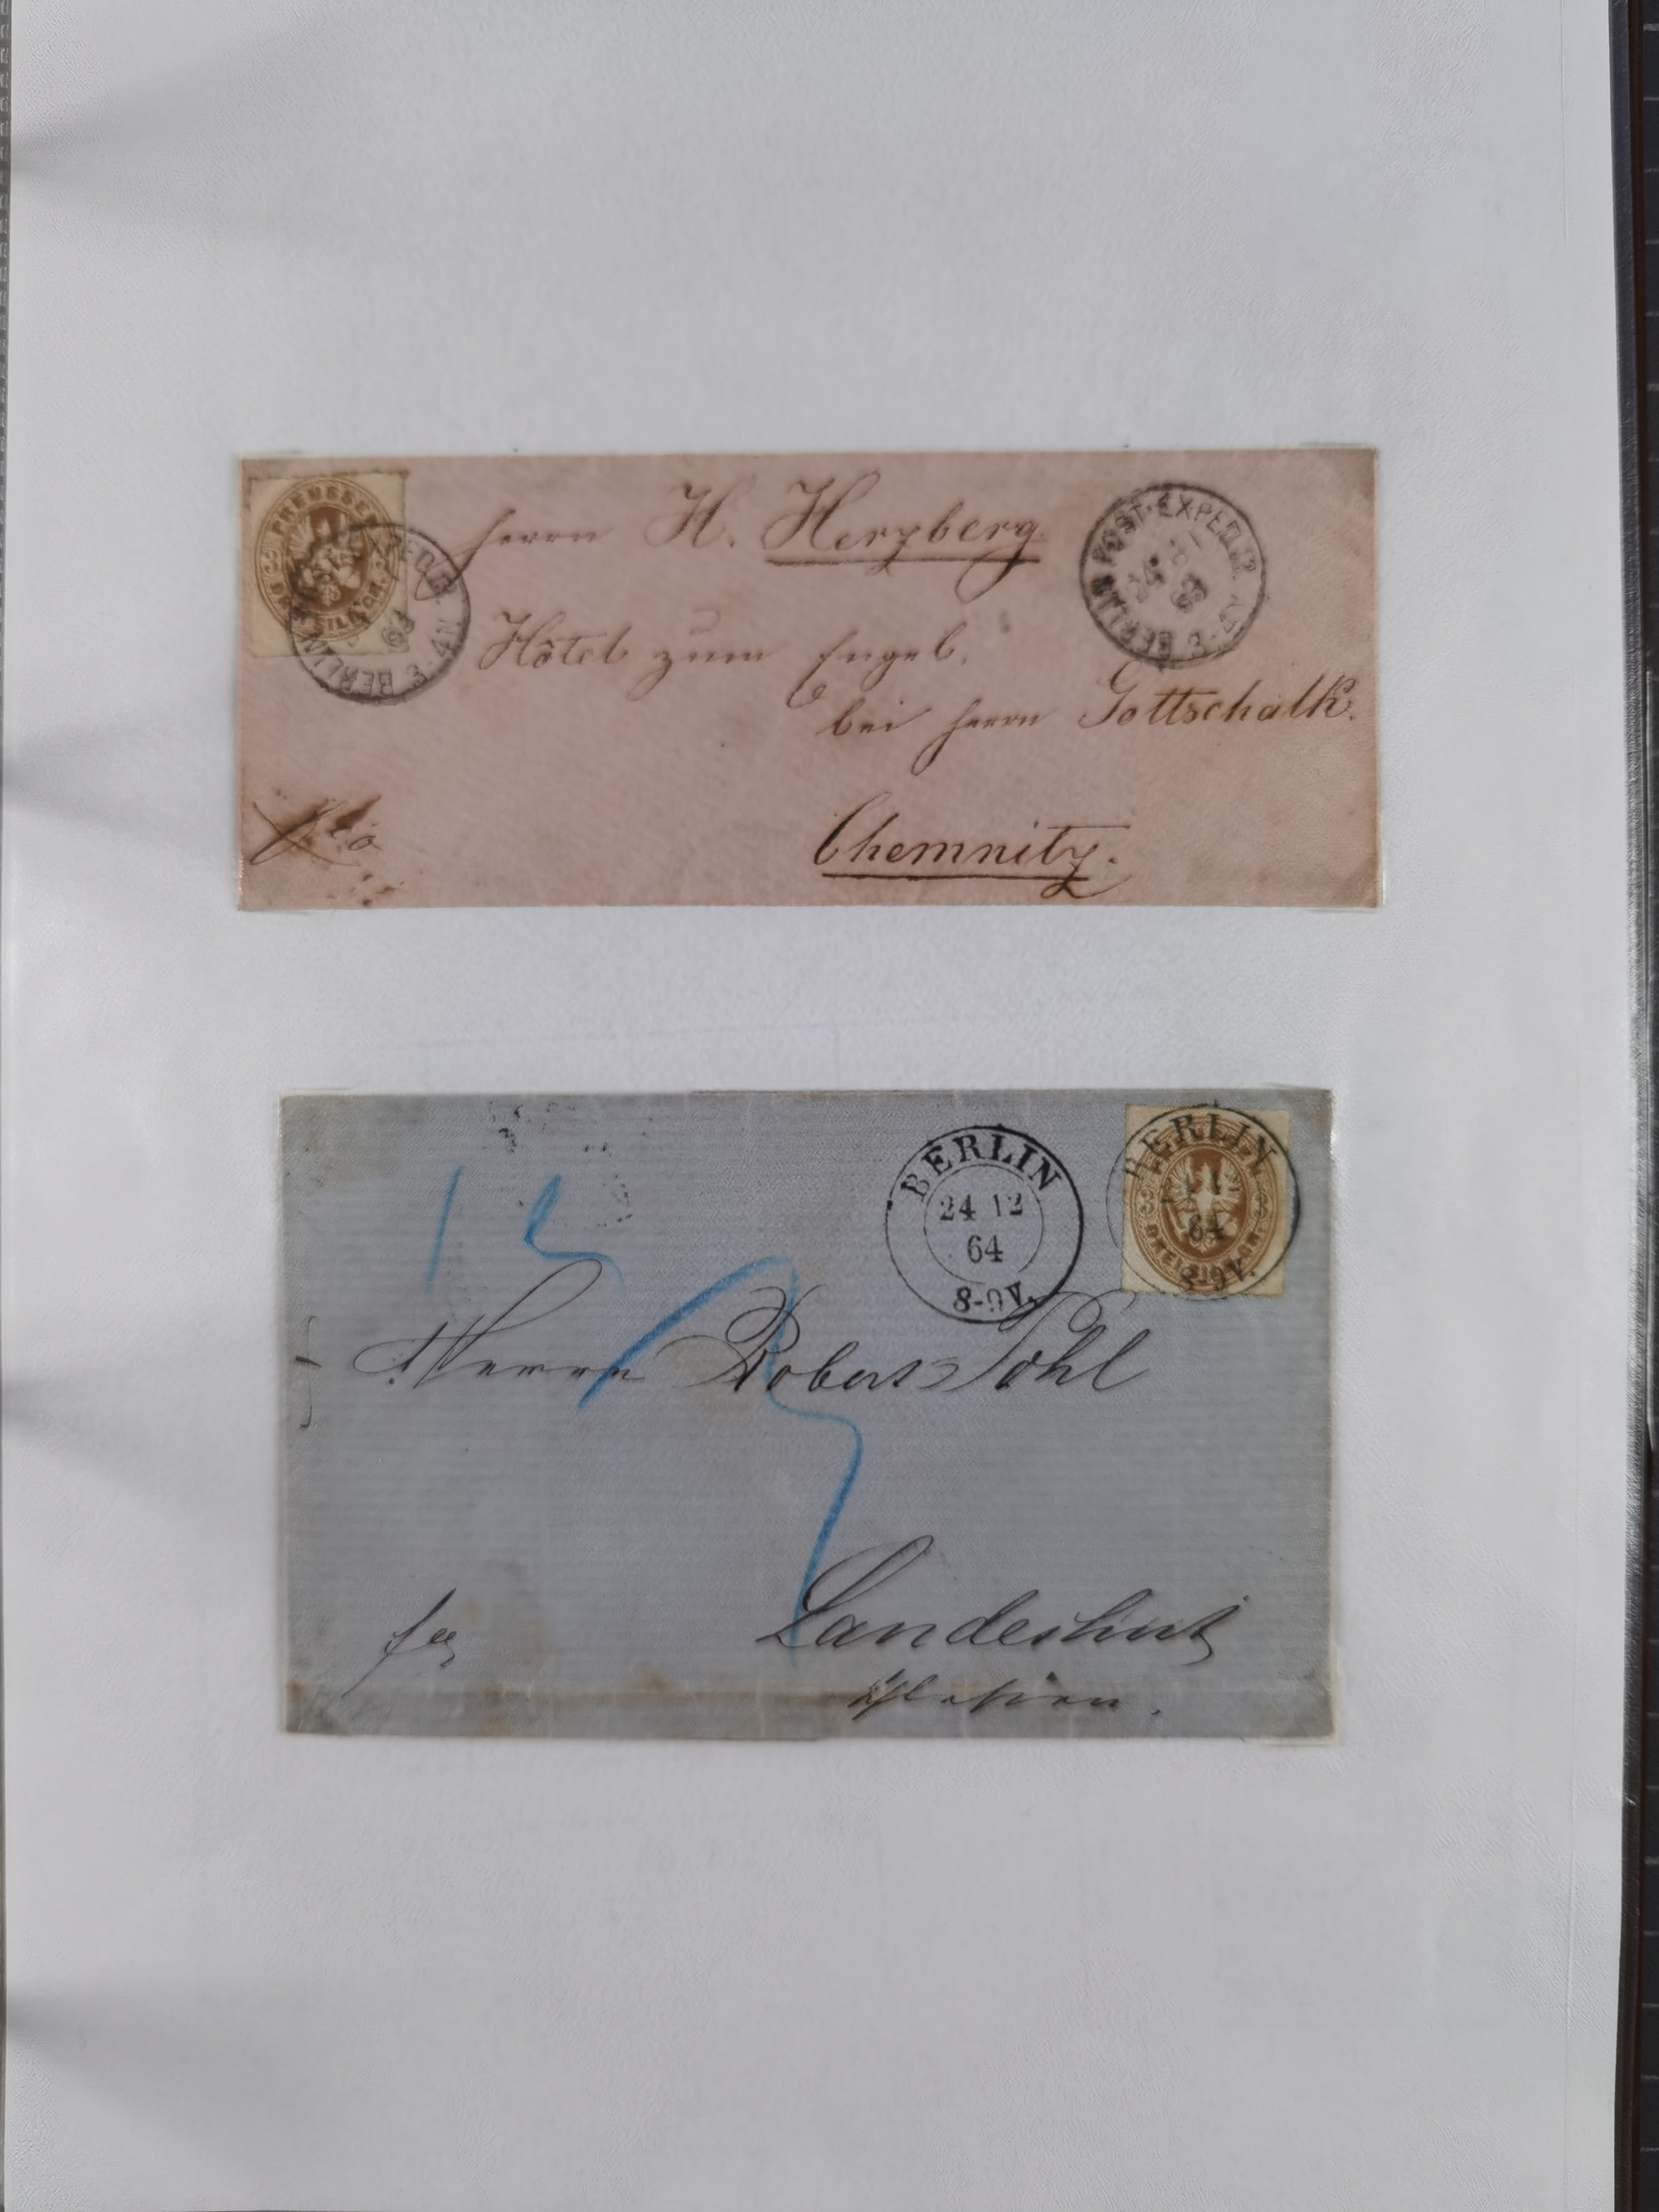 PREUSSEN
Herrn H. Herzberg
BERLIN POST-EXPED.
24
63
BERLIN
3-4N
Hôtel zum Engel,
bei Herrn Gottschalk.
Chemnitz.
BERLIN
24 12
64
8-9V.
BERLIN
64
8-9V.
Herrn Robert Pohl
Landeshut
fr